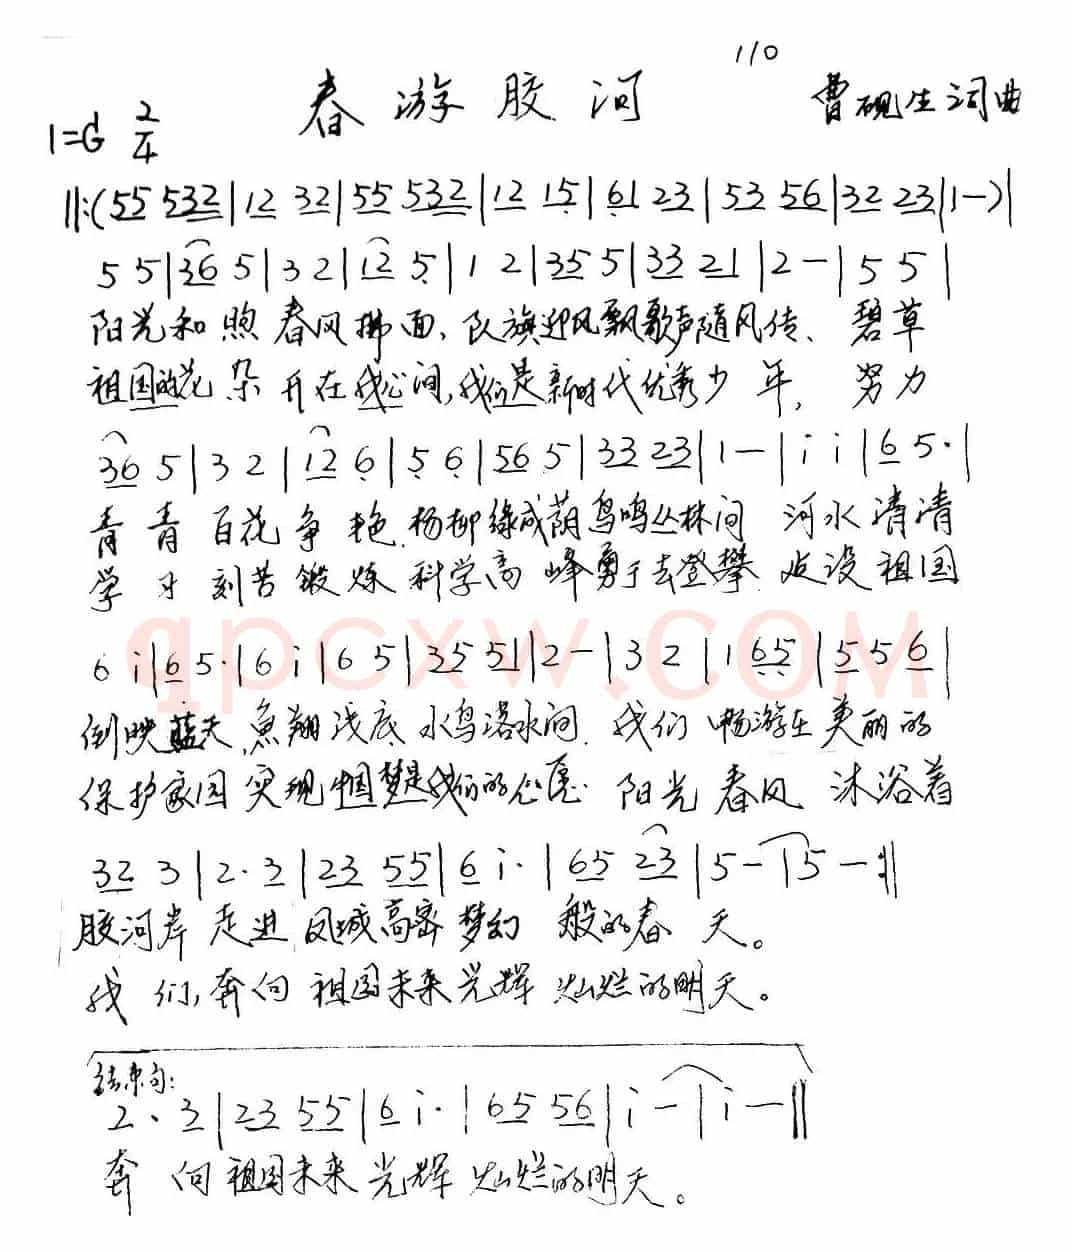 110
春游胶河
曹砚生词曲
1=G 2/4
||:(55 532|12 32|55 532|12 15|61 23|53 56|32 23|1-)|
5 5|36 5|3 2|12 5|1 2|35 5|33 21|2-|5 5|
阳光和煦 春风拂面、队旗迎风飘歌声随风传、碧草
祖国的花朵 开在我心间,我们是新时代优秀少年, 努力
36 5|3 2|12 6|5 6|56 5|33 23|1-|i i|6 5·|
青青 百花争艳.杨柳缘成荫鸟鸣丛林间 河水清清
学习 刻苦锻炼 科学高峰勇于去登攀 建设祖国
6 i|6 5·|6 i|6 5|35 5|2-|3 2|1 65|5 5 6|
qpcxw.com
倒映蓝天,鱼翔浅底 水鸟落水间. 我们 畅游在美丽的
保护家园 实现中国梦是我们的心愿. 阳光春风 沐浴着
32 3|2·3|23 55|6 i·|65 23|5-|5-:||
胶河岸 走进 凤城高密 梦幻 般的春天。
我们,奔向 祖国未来光辉 灿烂的明天。
结束句:
2·3|23 55|6 i·|65 56|i-|i-||
奔向祖国未来光辉 灿烂的明天。